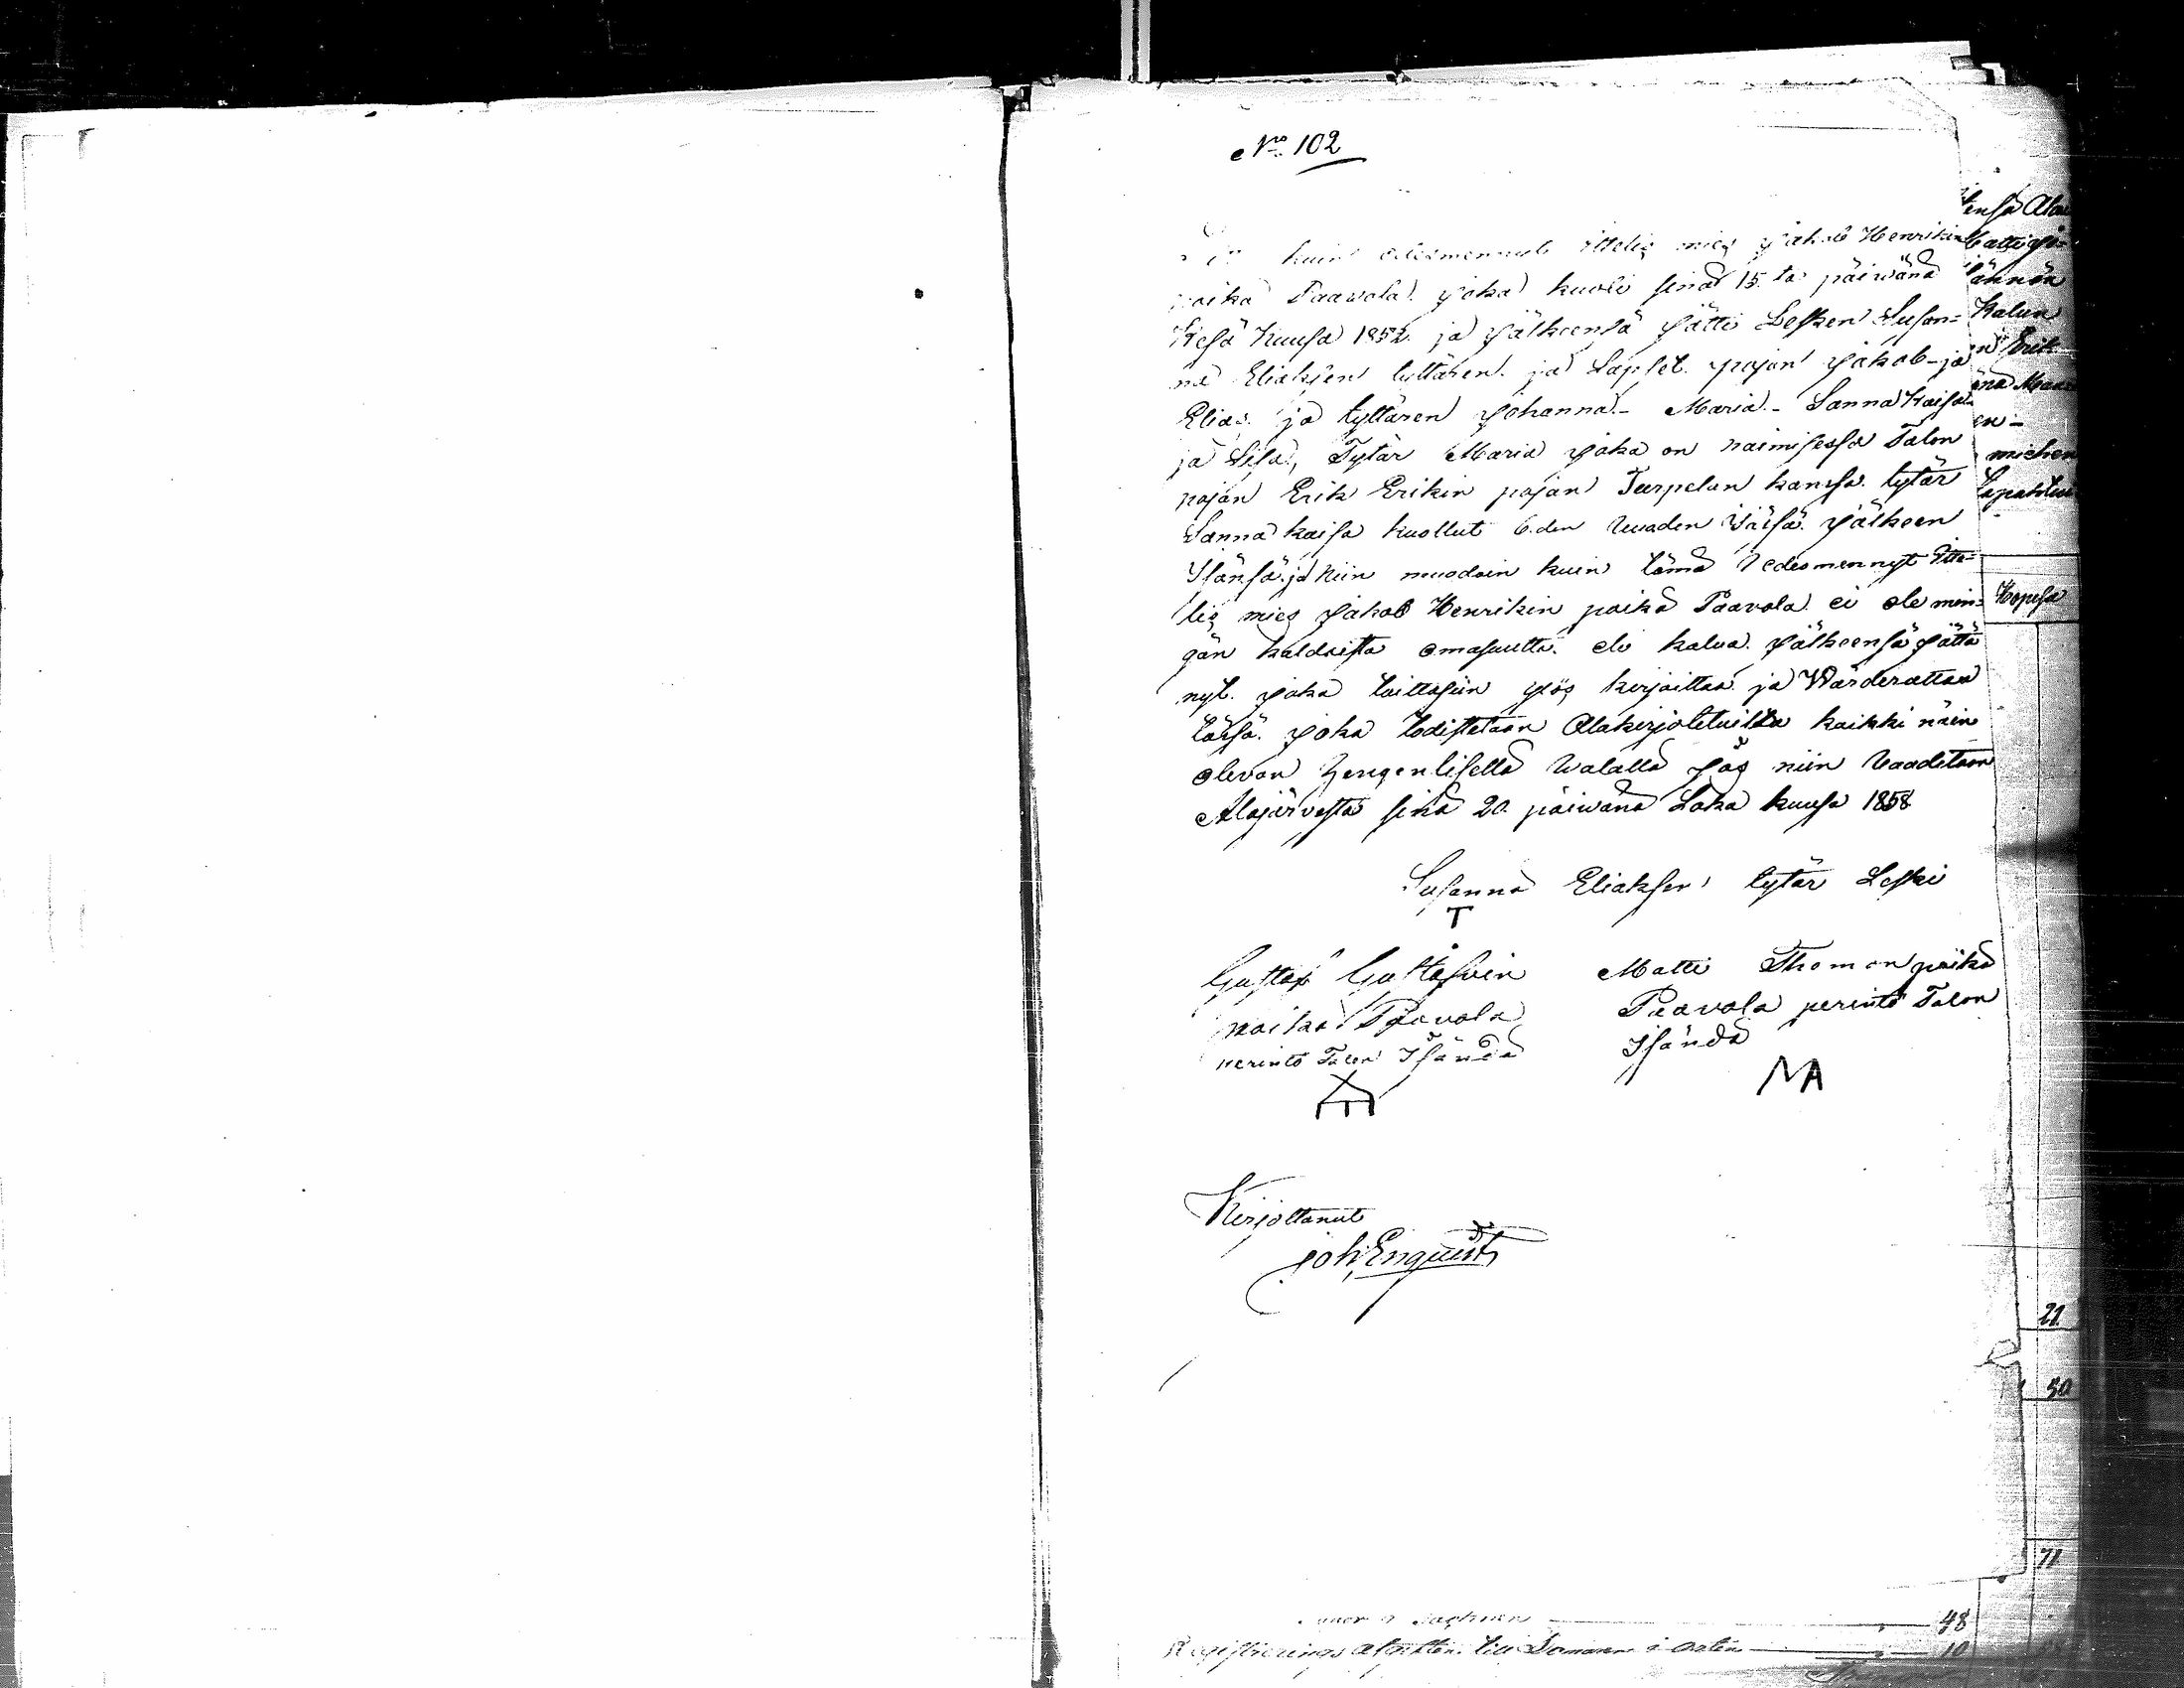 No 102
kuin edesmennyt ittelis mies Jakob Henrikin
poika Paavola. joka kuoli sinä 15.ta päiwänä
Kesä Kuusa 1852. ja jälkeensä jätti Lesken Susan=
na Eliaksen tyttären. ja Lapset. pojan Jakob - ja
Elias. ja tyttären Johanna - Maria - Sanna Kaisa
ja Lisa, Tytär Maria joka on naimisessa Talon
pojan Erik Erikin pojan Turpelan kansa. tytär
Sanna kaisa kuollut 6.den Vuoden jälkeen
Isänsä. ja Niin muodoin kuin tämä Edesmennyt Itte=
lis mies Jakob Henrikin poika Paavola. ei ole min=
gän kaldaista omasuutta. eli kalua. jälkeensä jättä
nyt. joka taittasiin ylös kirjoittaa. ja Wärderattaa
täsä. joka todistetaan Alakirjoitetuilta kaikki näin
olevan hengenlisellä Walalla jos niin Vaaditaan
Alajärvestä sinä 20. päiwänä Loka kuusa 1858
Susanna Eliaksen tytär Leski
T
Gustaf Gustafvin Matti Thoman poika
poika Paavola Paavola perintö Talon
perintö Talon Isändä Isändä
MA
Kirjottanut
Joh: Enquist
48
Registrerings till Domaren 10
Kalun
Erik
miehen
Kopeka
21
50
71